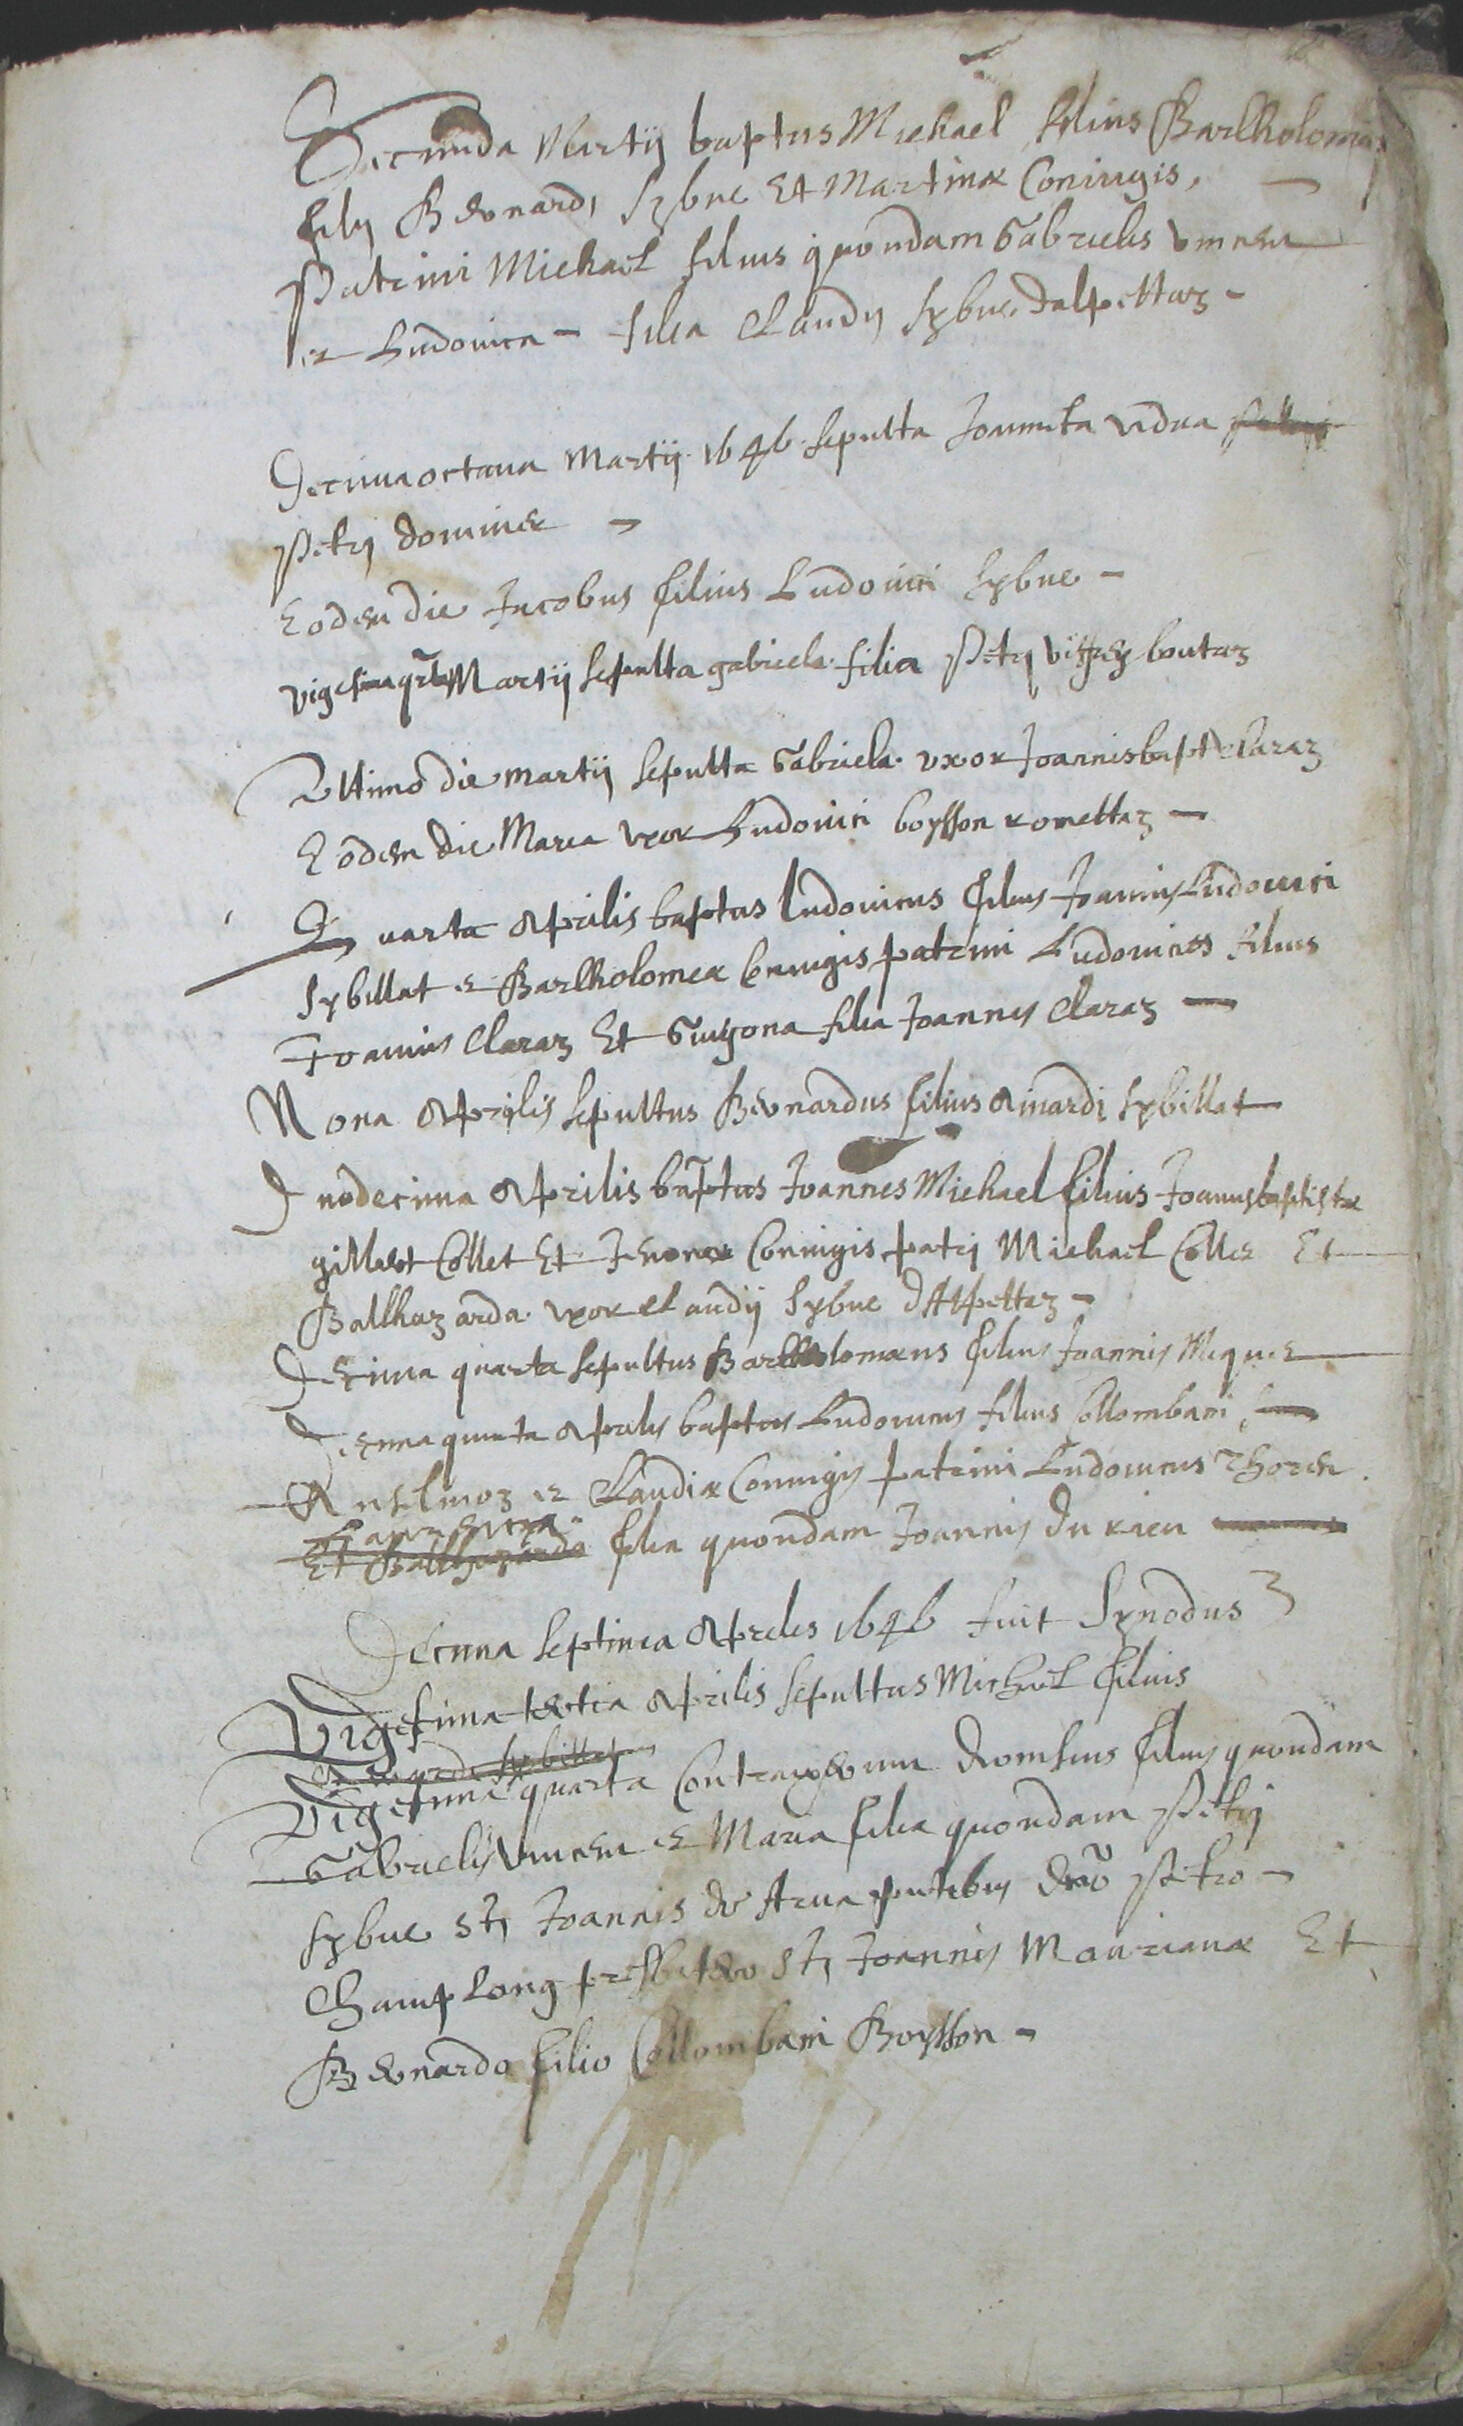 Secunda Martij baptus Michael filius Bartholomei
filij Bernardi Sybue Et Martinæ Coniugis,
Patrini Michael filius quondam Gabrielis vincen
et Ludovica - filia Claudij Sybue dalpettaz -
Decima octaua Martij 1646 sepulta Joanneta vidua
Petrj dominex -
Eodem die Jacobus filius Ludovici Sybue -
vigesima qrta Martij sepulta gabriela filia Petrj boutaz
Ultimo die martij sepulta Gabriela uxor Joannisbapte Claraz
Eodem die Maria uxor Ludovici boysson romettaz -
Quarta Aprilis baptus ludovicus filius Joannis Ludovici
Sybillat et Bartholomeæ Coniugis patrini Ludovicus filius
Joannis Claraz Et Guigona filia Joannis Claraz -
Nona Aprilis sepultus Bernardus filius Ainardi Sybillat
Duodecima Aprilis baptus Joannes Michael filius Joannisbaptistæ
gilbert Collet Et Coniugis patrj Michael Collet Et
Balthazarda uxor Claudij Sybue dAlpettaz -
Decima quarta sepultus Bartholomæus filius Joannis
Decima quinta Aprilis baptus Ludovicus filius Collombani
Anselmoz et Claudiæ Coniugis patrini Ludovicus Thoren
Laurentia
Et Balthazarda filia quondam Joannis du rieu
Decima septima Aprilis 1646 fuit Synodus
Vigesima tertia Aprilis sepultus Michael filius
Aynardi Sybillat
Vigesima quarta Contraxerunt filius quondam
Gabrielis Vincen et Maria filia quondam Petrj
Sybue Stj Joannis de Arua pntibus dno Petro -
Champlong presbitero Stj Joannis Maurianæ Et
Bernardo filio Collombani Boysson -